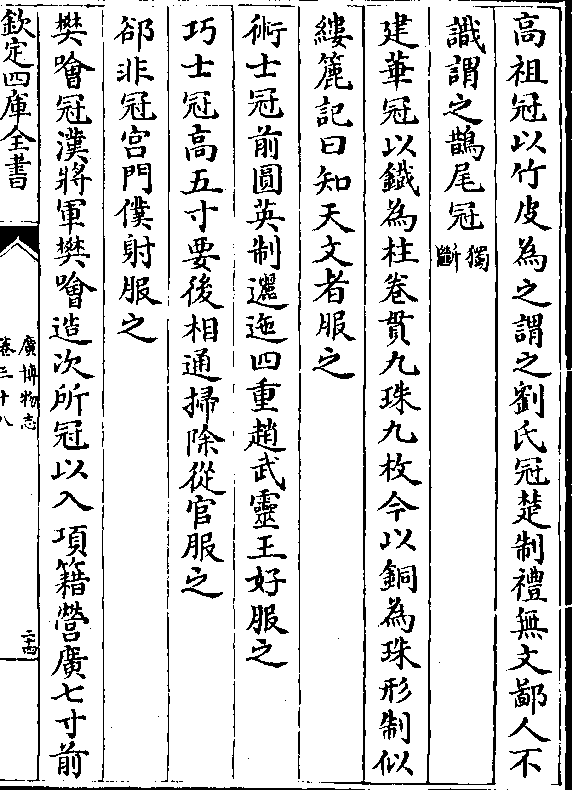 高祖冠以竹皮為之謂之劉氏冠楚制禮無文鄙人不
識謂之鵲尾冠獨斷
建華冠以鐵為柱卷貫九珠九枚今以銅為珠形制似
縷簏記曰知天文者服之
術士冠前圓英制邐迤四重趙武靈王好服之
巧士冠高五寸要後相通掃除從官服之
郤非冠宫門僕射服之
樊噲冠漢將軍樊噲造次所冠以入項籍營廣七寸前
欽定四庫全書
廣博物志
卷三十八
二十四